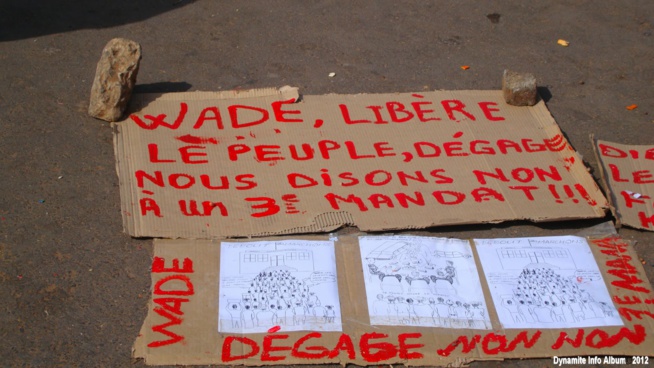 WADE, LIBÈRE
LE PEUPLE, DÉGAGE
NOUS DISONS NON
À UN 3E MANDAT!!!
WADE
DÉGAGE NON NON
3E MAN
LE
Dynamite Info Album 2012